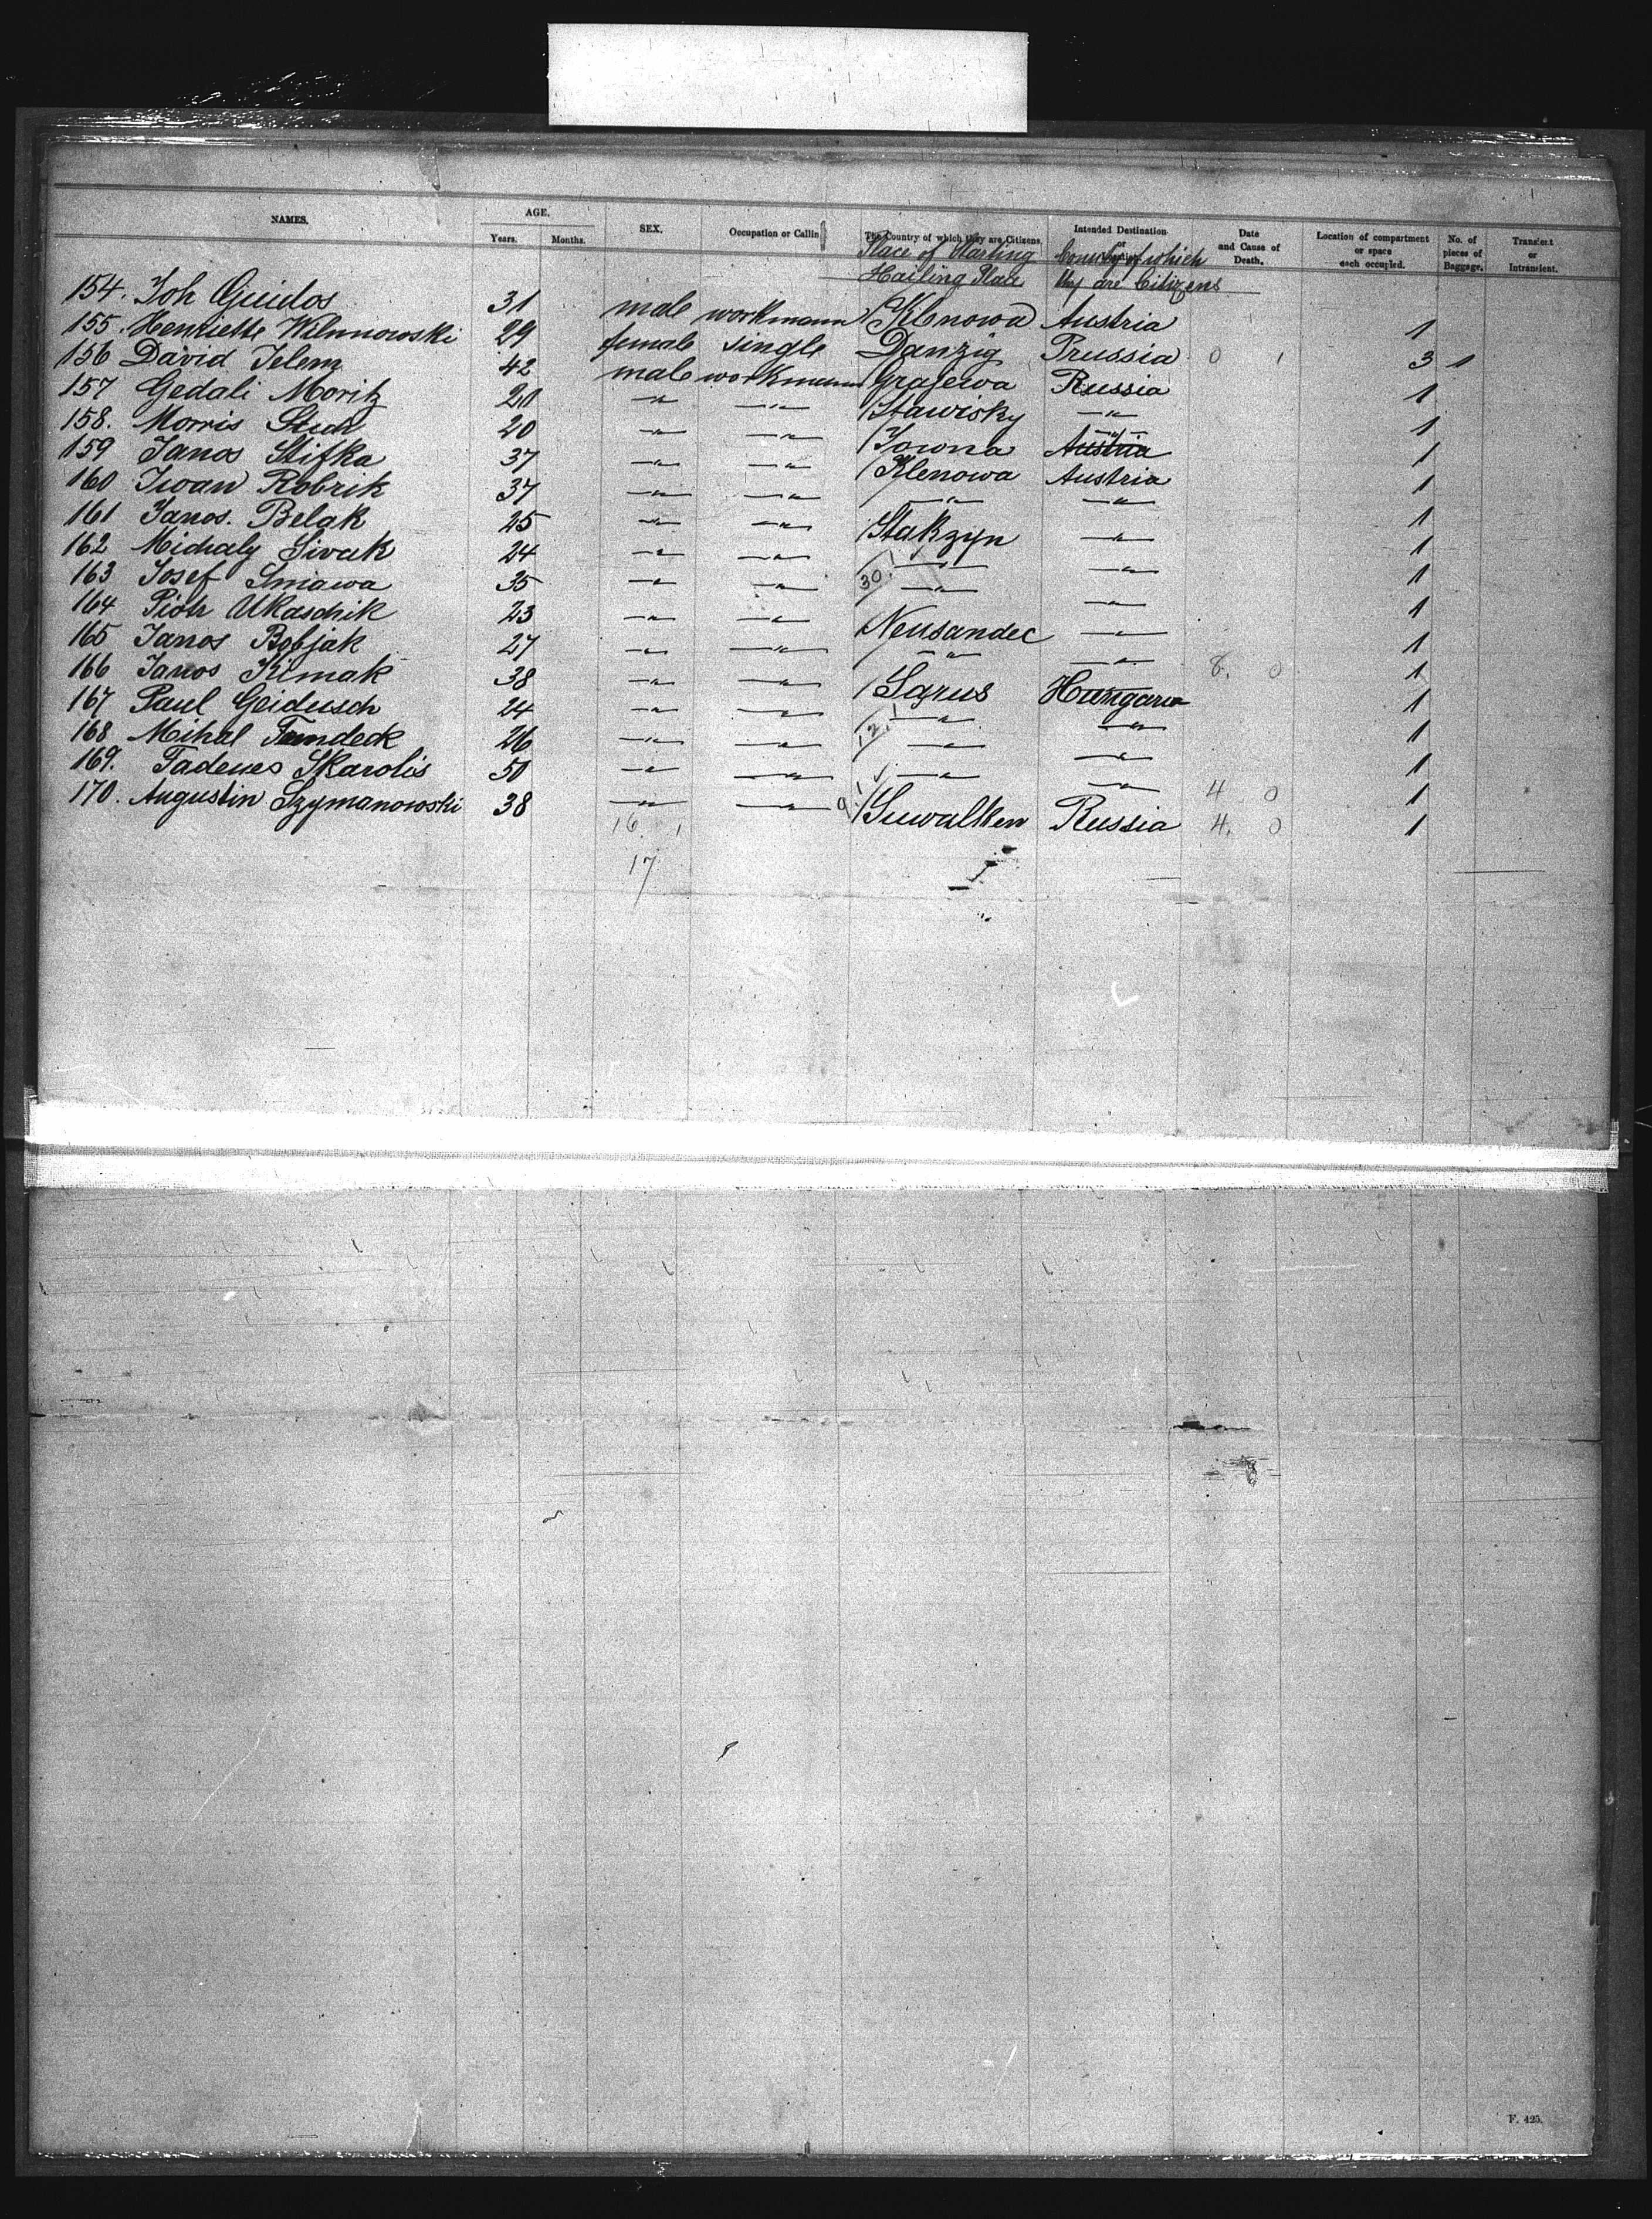 NAMES. AGE. Years. Months. SEX. Occupation or Callin The Country of which they are Citizens. Intended Destination or Date and Cause of Death. Location of compartment or space each occupied. No. of pieces of Baggage. Transient or Intransient.
Place of Starting Country of which
Hailing Place they are Citizens
154. Joh Guidos 31 male workmann Klenowa Austria 1
155. Henriette Wilmnowski 29 female single Danzig Prussia 0 1 3 1
156 David Jelem 42 male workmann Grajewa Russia 1
157 Gedali Moritz 20 —"— —"— Stawisky —"— 1
158. Morris 20 —"— —"— Kowna Austria —"— 1
159 Janos Stifka 37 —"— —"— Klenowa Austria 1
160 Iwan Kobrik 37 —"— —"— —"— —"— 1
161 Janos. Belak 25 —"— —"— Stakzyn —"— 1
162 Michaly Sivak 24 —"— —"— —"— —"— 1
163 Josef Smiawa 35 —"— —"— 30 —"— —"— 1
164 Piotr Ukaschik 23 —"— —"— Neusandec —"— 1
165 Janos Bobjak 27 —"— —"— —"— —"— 8. 0 1
166 Janos Kimak 38 —"— —"— Sarus Hungaria 1
167 Paul Geidusch 24 —"— —"— —"— —"— 1
168 Mihal Tumdeck 26 —"— —"— 12 —"— —"— 1
169. Tadeues Skarolis 50 —"— —"— —"— —"— 4 0 1
170. Augustin Szymanowski 38 —"— —"— 9 Suwalken Russia 4. 0 1
16 1
17
F. 425.